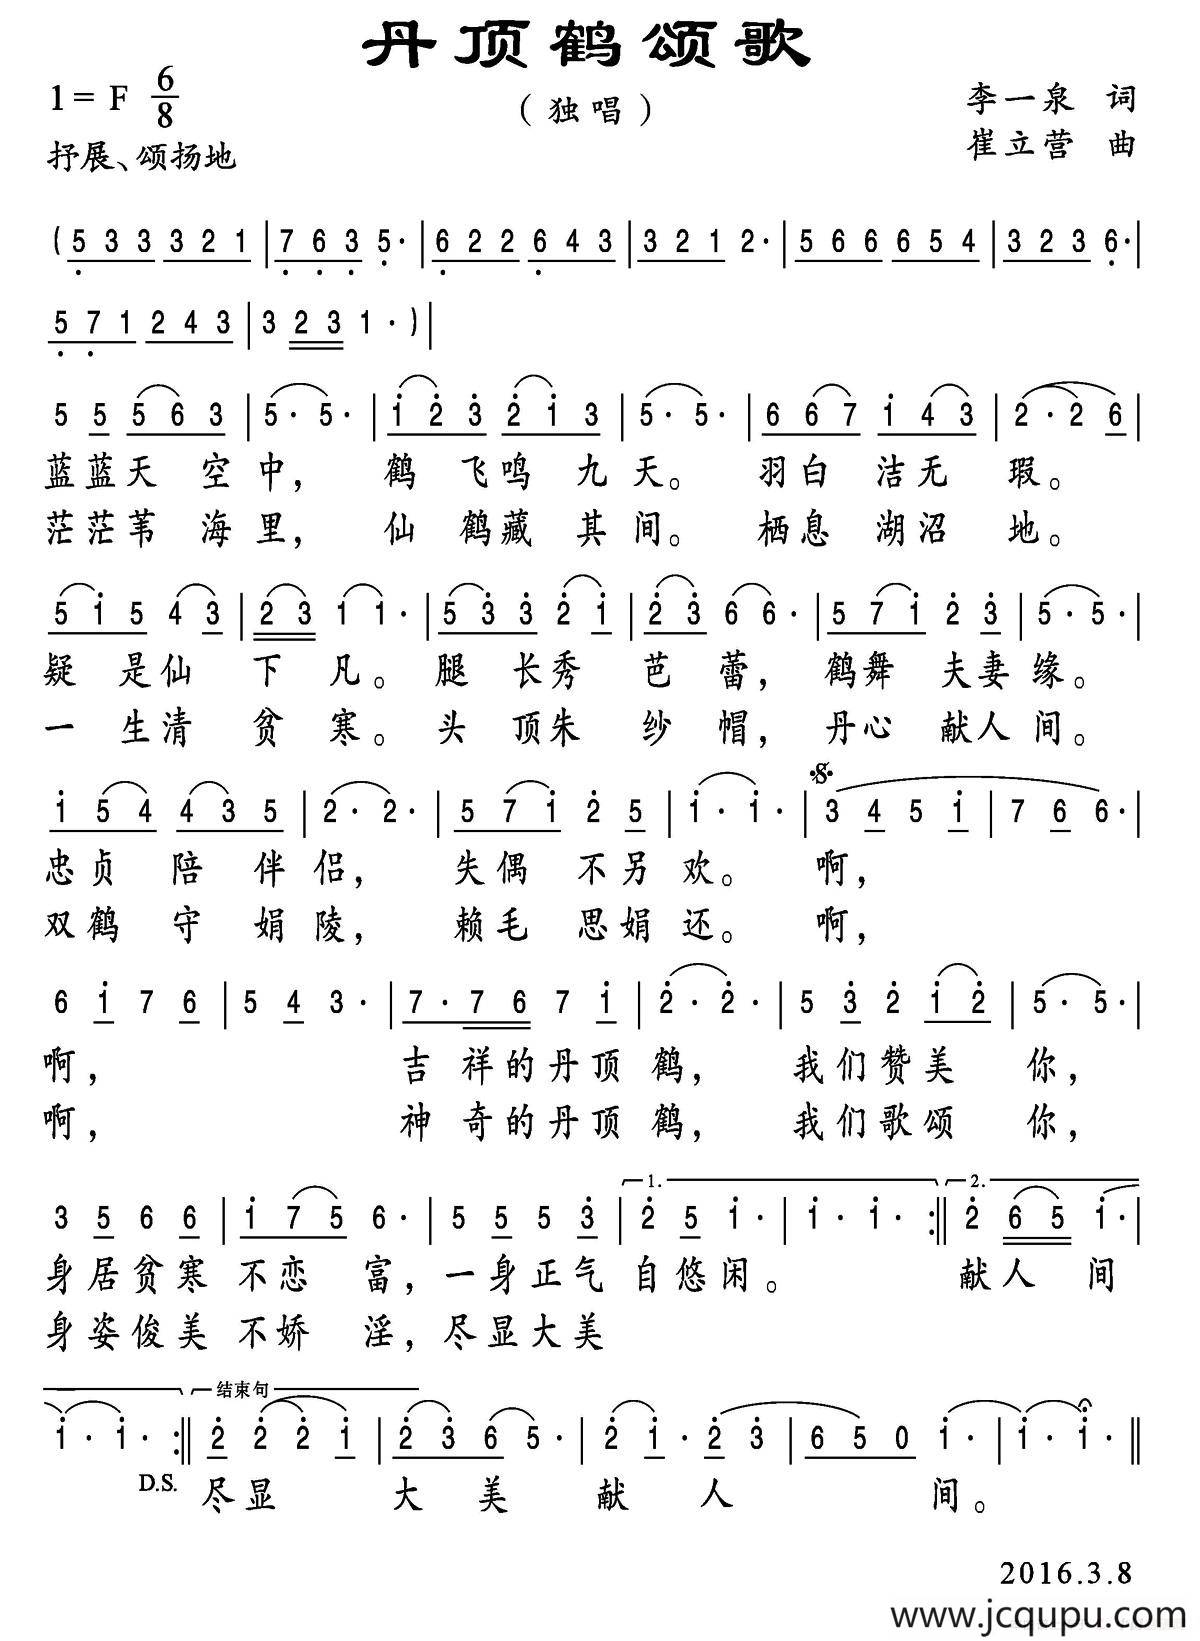 丹顶鹤颂歌
1= F 6/8
（独唱）
李一泉 词
抒展、颂扬地
崔立营 曲
( 5 3 3 3 2 1 | 7 6 3 5· | 6 2 2 6 4 3 | 3 2 1 2· | 5 6 6 6 5 4 | 3 2 3 6· |
5 7 1 2 4 3 | 3 2 3 1 · ) |
5 5 5 6 3 | 5· 5· | 1 2 3 2 1 3 | 5· 5· | 6 6 7 1 4 3 | 2· 2 6 |
蓝蓝天 空中， 鹤 飞鸣 九天。 羽白 洁无 瑕。
茫茫苇 海里， 仙 鹤藏 其间。 栖息 湖沼 地。
5 1 5 4 3 | 2 3 1 1· | 5 3 3 2 1 | 2 3 6 6· | 5 7 1 2 3 | 5· 5· |
疑 是仙 下 凡。 腿 长秀 芭 蕾， 鹤舞 夫妻缘。
一 生清 贫 寒。 头 顶朱 纱 帽， 丹心 献人间。
1 5 4 4 3 5 | 2· 2· | 5 7 1 2 5 | 1· 1· | 3 4 5 1 | 7 6 6· |
忠贞 陪 伴侣， 失偶 不另 欢。 啊，
双鹤 守 娟陵， 赖毛 思娟 还。 啊，
6 1 7 6 | 5 4 3· | 7· 7 6 7 1 | 2· 2· | 5 3 2 1 2 | 5· 5· |
啊， 吉 祥的丹顶 鹤， 我们赞美 你，
啊， 神 奇的丹顶 鹤， 我们歌颂 你，
1. 2.
3 5 6 6 | 1 7 5 6· | 5 5 5 3 | 2 5 1· | 1· 1· :‖ 2 6 5 1· |
身居贫寒 不恋 富，一身正气 自悠闲。 献人 间
身姿俊美 不娇 淫，尽显大美
结束句
1· 1· :‖ 2 2 2 1 | 2 3 6 5· | 2 1· 2 3 | 6 5 0 1· | 1· 1· ‖
D.S. 尽显 大 美 献 人 间。
2016.3.8
www.jcqupu.com